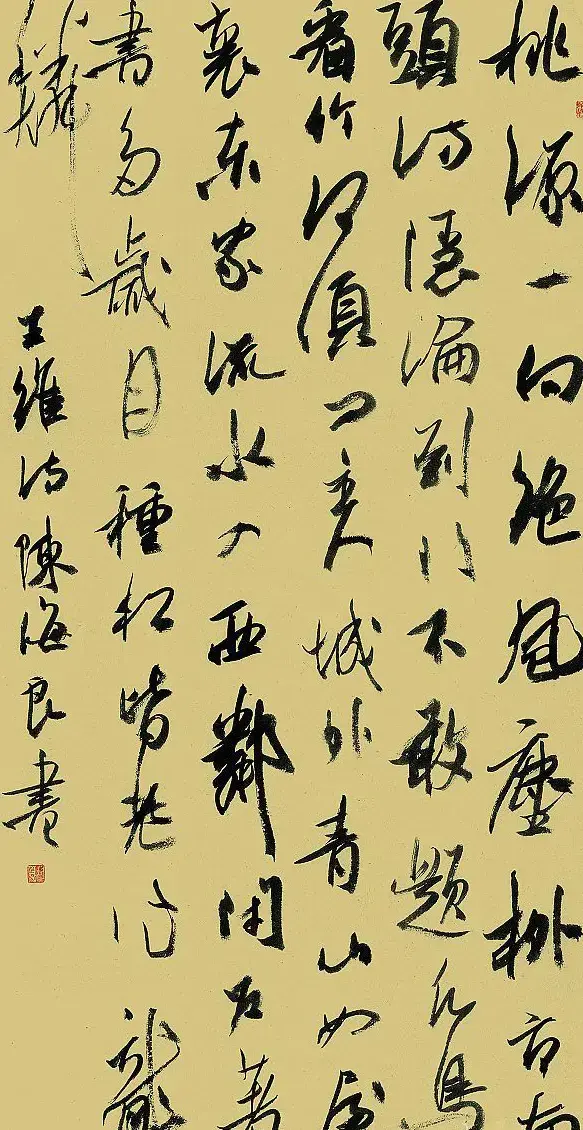 桃源一向絶風塵柳市南
頭访隱淪到门不敢題凡鳥
看竹何須问主人城外青山如屋
裏東家流水入西鄰闭户著
書多歲月種松皆老作龍
鱗
王維诗陳海良書